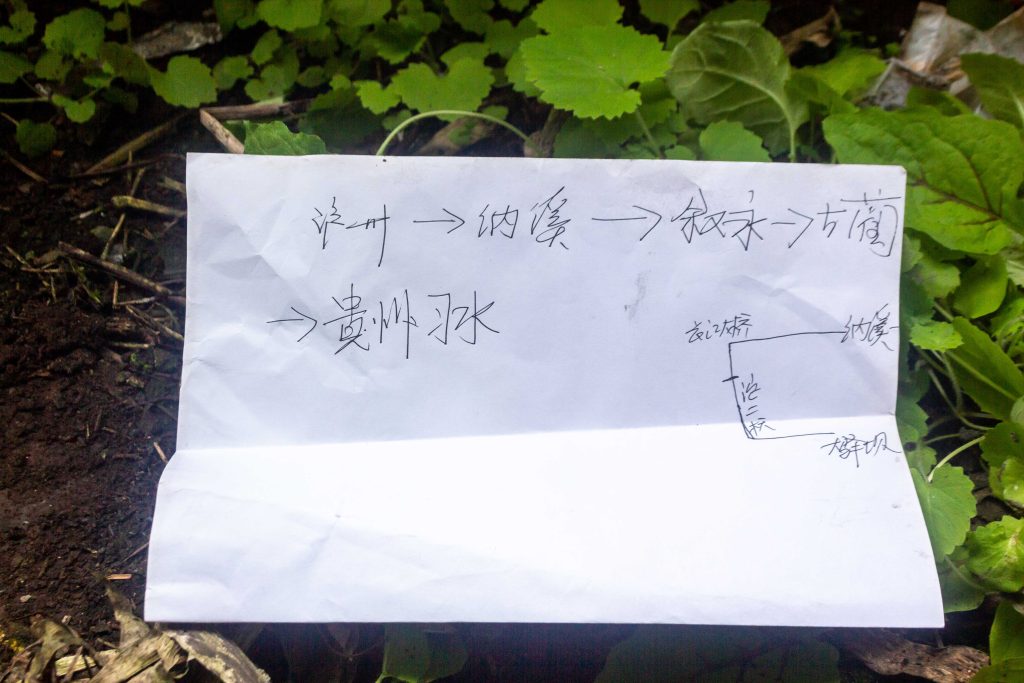 泸州 → 纳溪 → 叙永 → 古蔺
→ 貴州 习水
长江大桥 纳溪
泸二桥